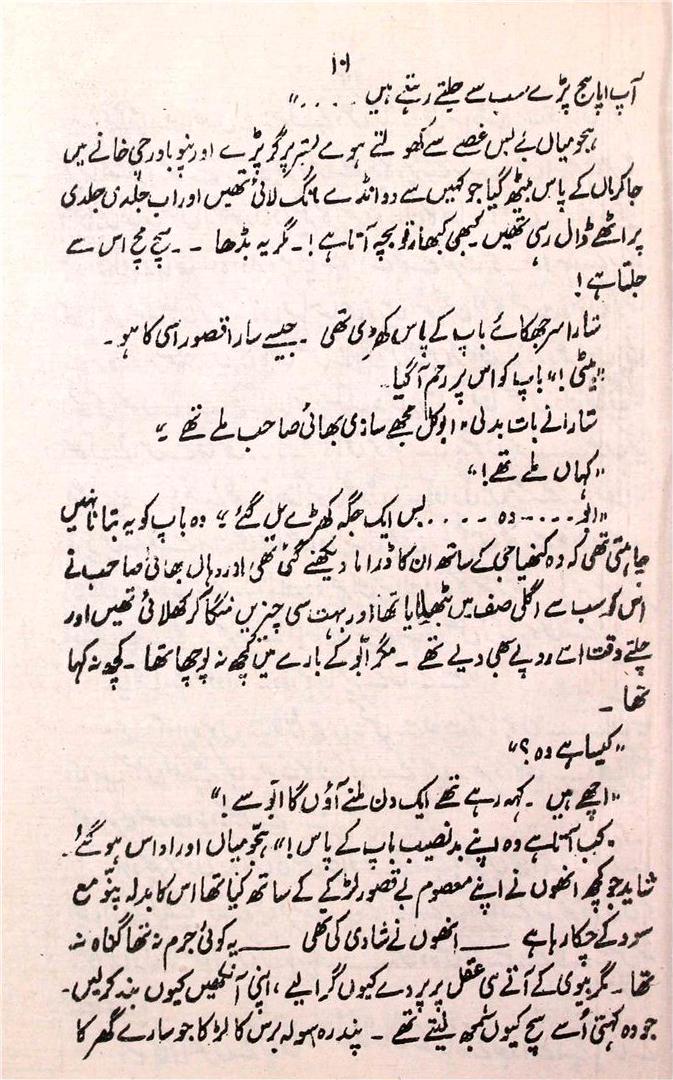 ۱۰۱
آپ اپاہج پڑے سب سے جلتے رہتے ہیں ....."
ہجومیاں بے بس غصے سے کھولتے ہوے بستر پر گر پڑے اور پنو باورچی خانے میں
جا کر ماں کے پاس بیٹھ گیا جو کہیں سے دو انڈے مانگ لائی تھیں اور اب جلدی جلدی
پراٹھے ڈال رہی تھیں کبھی کبھار تو بچہ آتا ہے !۔ مگر یہ بڈھا ۔ ۔ سچ مچ اس سے
جلتا ہے !
شارا سر جھکائے باپ کے پاس کھڑی تھی ۔ جیسے سارا قصور اسی کا ہو ۔
"بیٹی !" باپ کو اس پر رحم آگیا۔
شارا نے بات بدلی "ابو کل مجھے سازی بھائی صاحب ملے تھے ۔"
"کہاں ملے تھے !"
"ابو ۔۔۔۔ وہ ۔ ۔ ۔ ۔ بس ایک جگہ کھڑے مل گئے ۔" وہ باپ کو یہ بتانا نہیں
چاہتی تھی کہ وہ کنھیا جی کے ساتھ ان کا ڈراما دیکھنے گئی تھی اور وہاں بھائی صاحب نے
اس کو سب سے اگلی صف میں بٹھلایا تھا اور بہت سی چیزیں منگا کر کھلائی تھیں اور
چلتے وقت اسے روپے بھی دیے تھے ۔ مگر ابّو کے بارے میں کچھ نہ پوچھا تھا ۔ کچھ نہ کہا
تھا ۔
"کیسا ہے وہ ؟"
"اچھے ہیں ۔ کہہ رہے تھے ایک دن ملنے آؤں گا ابّو سے !"
"کب آتا ہے وہ اپنے بدنصیب باپ کے پاس !" ہجّو میاں اور اداس ہو گئے ۔
شاید جو کچھ انھوں نے اپنے معصوم بے قصور لڑکے کے ساتھ کیا تھا اس کا بدلہ پنّو مع
سود کے چکا رہا ہے —— انھوں نے شادی کی تھی —— یہ کوئی جرم نہ تھا گناہ نہ
تھا ۔ مگر بیوی کے آتے ہی عقل پر پردے کیوں گرا لیے ، اپنی آنکھیں کیوں بند کر لیں۔
جو وہ کہتی اُسے سچ کیوں سمجھ لیتے تھے ۔ پندرہ سولہ برس کا لڑکا جو سارے گھر کا